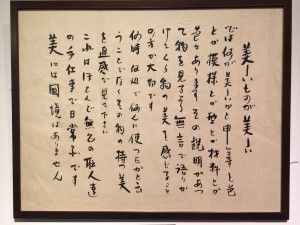 美しいものが美しい
では何が美しいかと申しますと色
とか模様とか型とか材料とか
色々あります その説明があつ
て物を見るより無言で語りか
けてくる物の美を感じること
の方が大切です
何時何辺で何に使つたかと云
うことでなくその物の持つ美
を直感で見て下さい
これはほとんど無名の職人達
の手仕事で日常品です
美には国境はありません